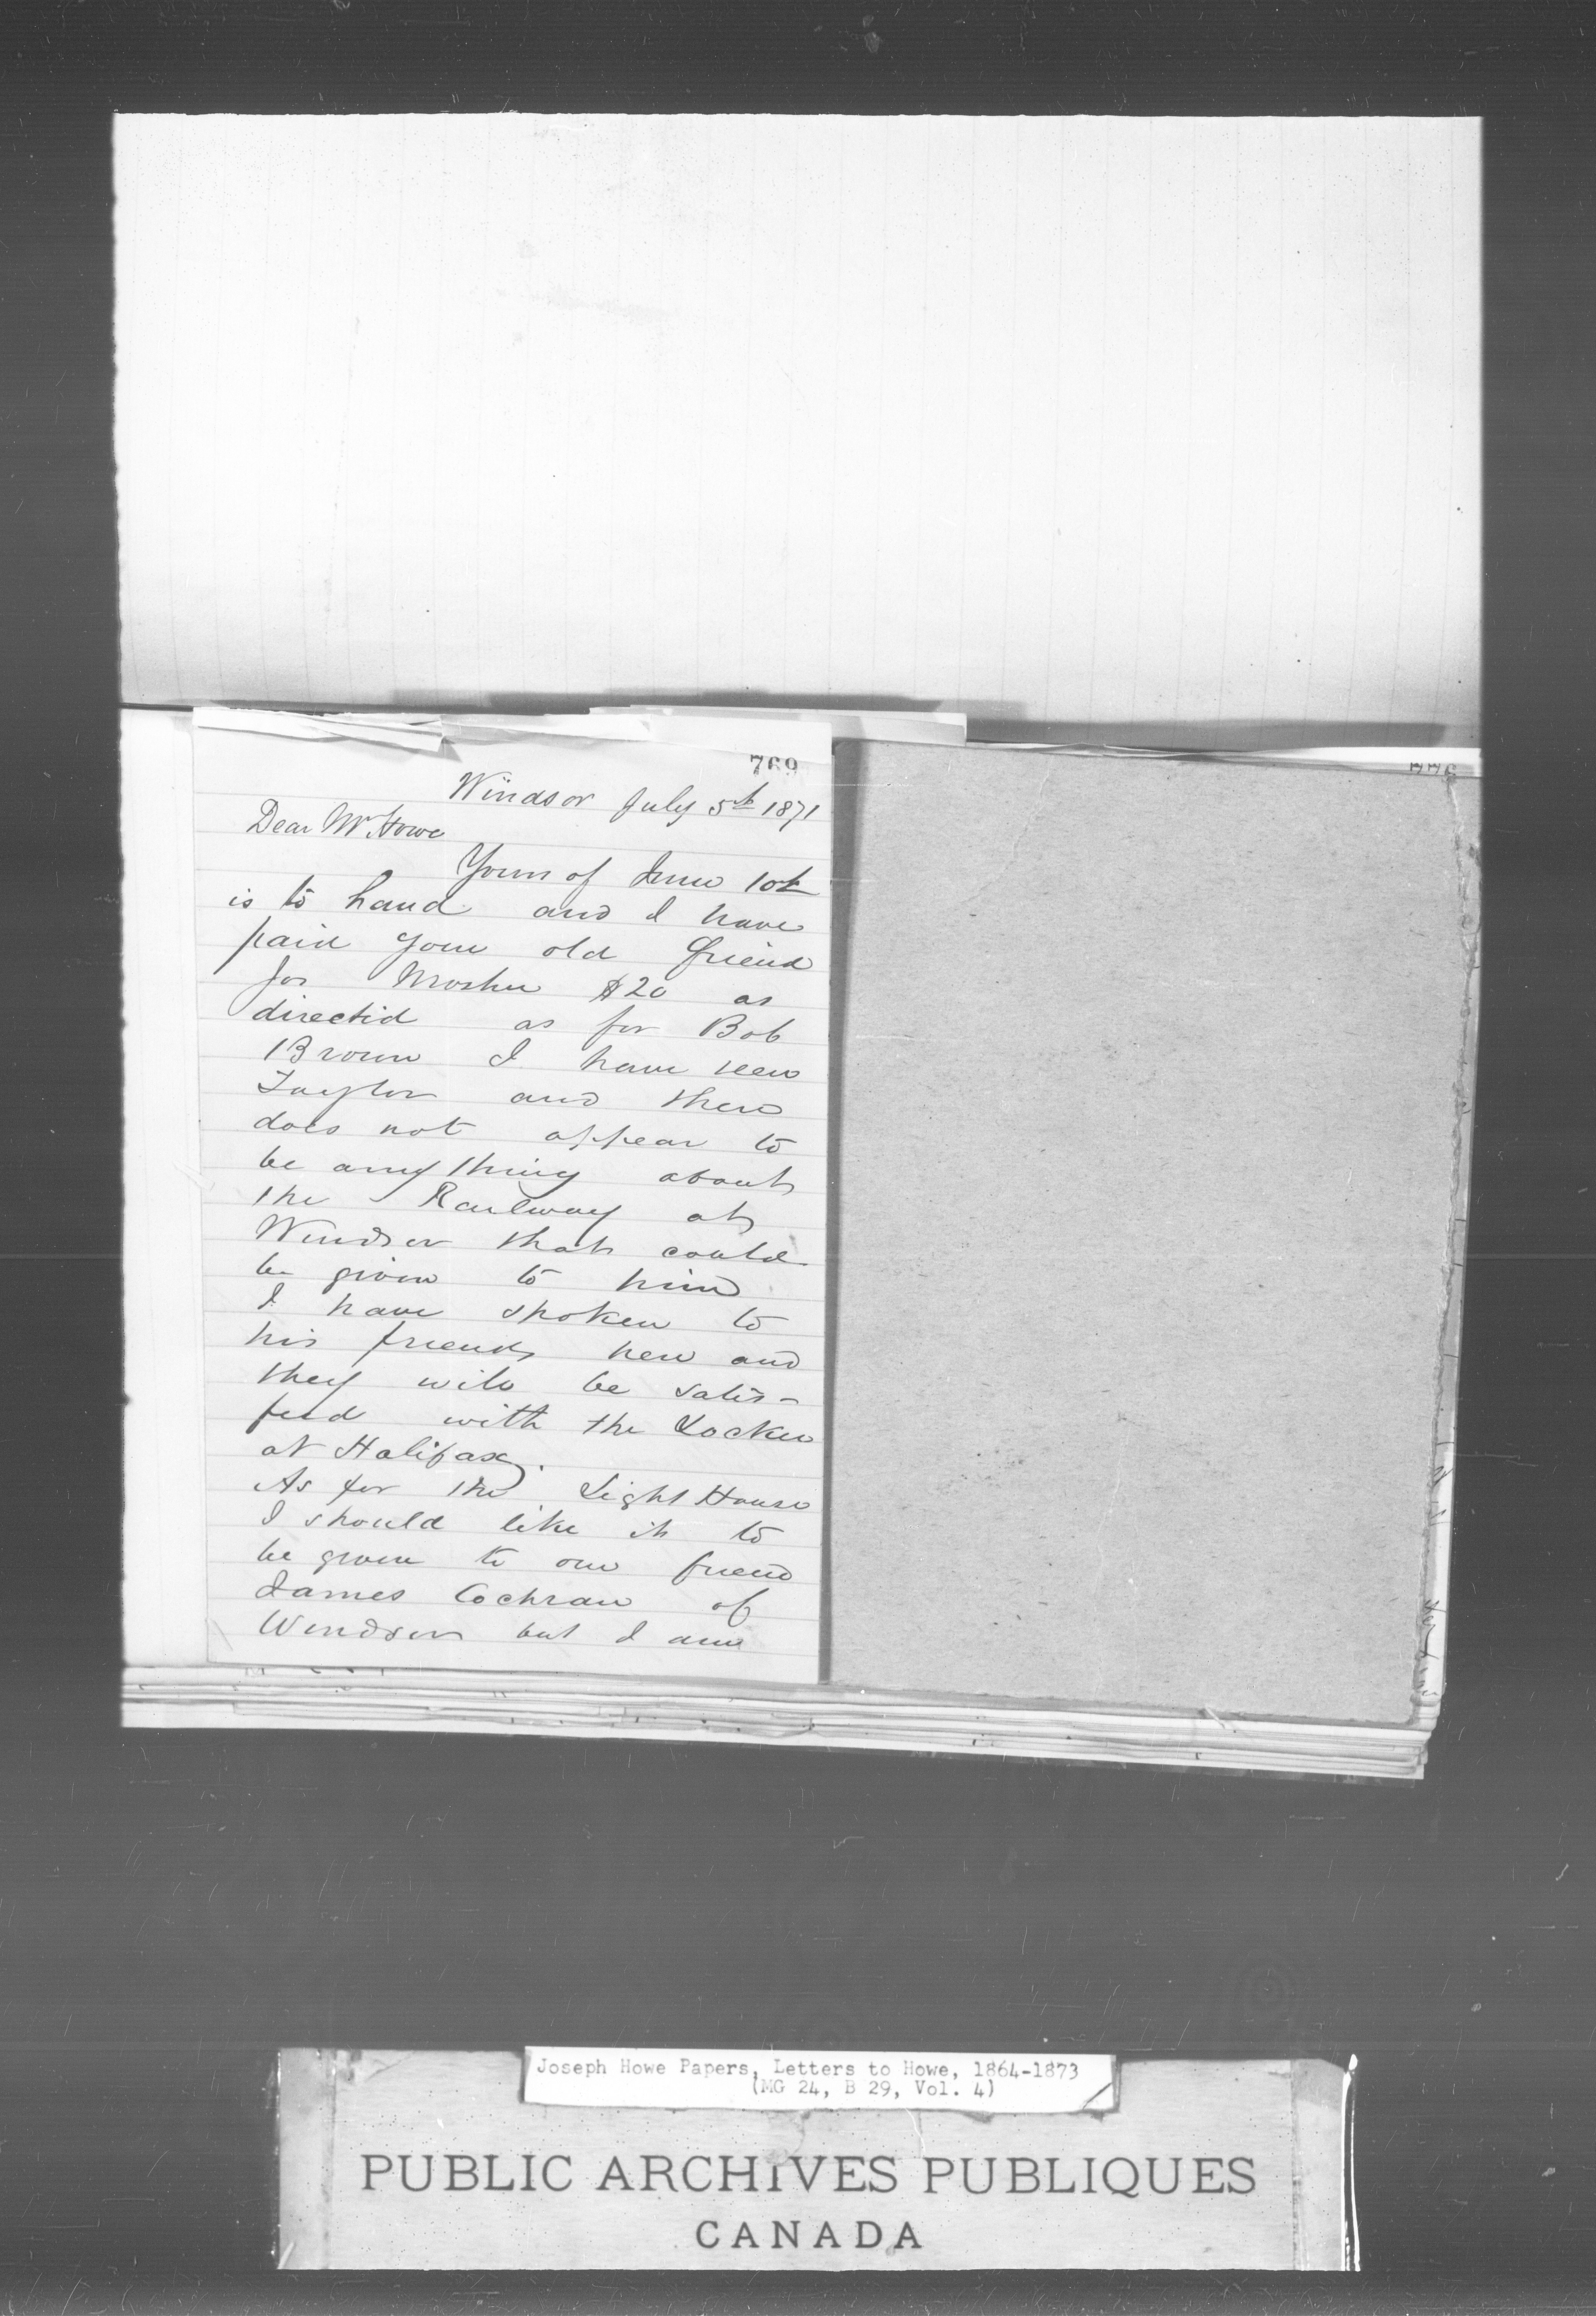 769
776
Windsor July 5th 1871
Dear Mr Howe
Yours of June 10th
is to hand and I have
paid your old friend
Jos Mosher $20 as
directid as for Bob
Brown I have seen
Taylor and there
does not appear to
be any thing about
the Railway at
Windsor that could
be given to him
I have spoken to
his friends here and
they will be satis-
feid with the Locker
at Halifax.
As for the Light House
I should like it to
be given to our friend
James Cochran of
Windsor but I am
Joseph Howe Papers, Letters to Howe, 1864-1873
(MG 24, B 29, Vol. 4)
PUBLIC ARCHIVES PUBLIQUES
CANADA